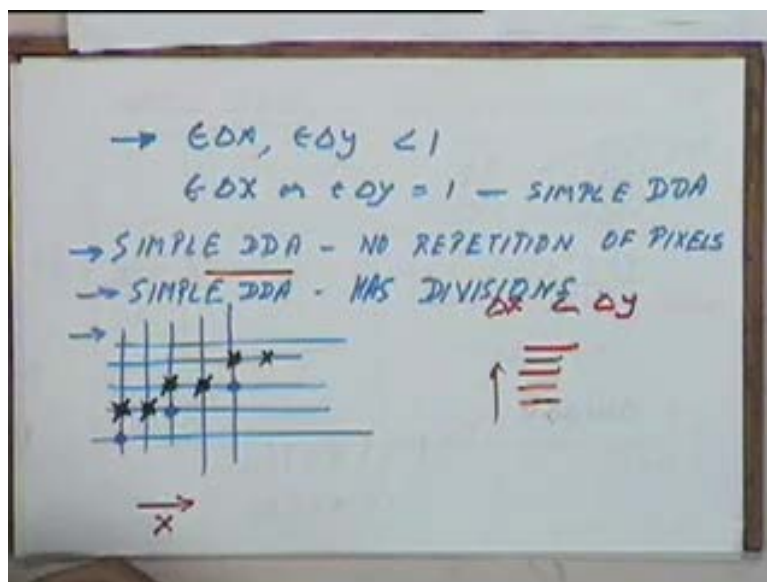 → ЄΔX, ЄΔy < 1
ЄΔX or ЄΔy = 1 — SIMPLE DDA
→ SIMPLE DDA - NO REPETITION OF PIXELS
→ SIMPLE DDA - HAS DIVISIONS
Δx < Δy
→
x